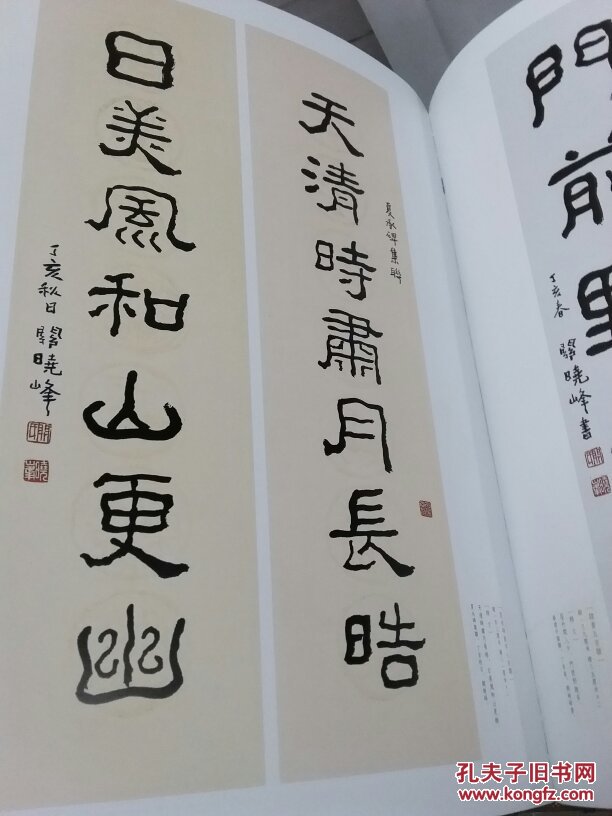 天清時肅月長晧
夏承碑集聯
日美風和山更幽
丁亥秋日 關曉峰
門前
丁亥春 關曉峰書
孔夫子旧书网
www.kongfz.com